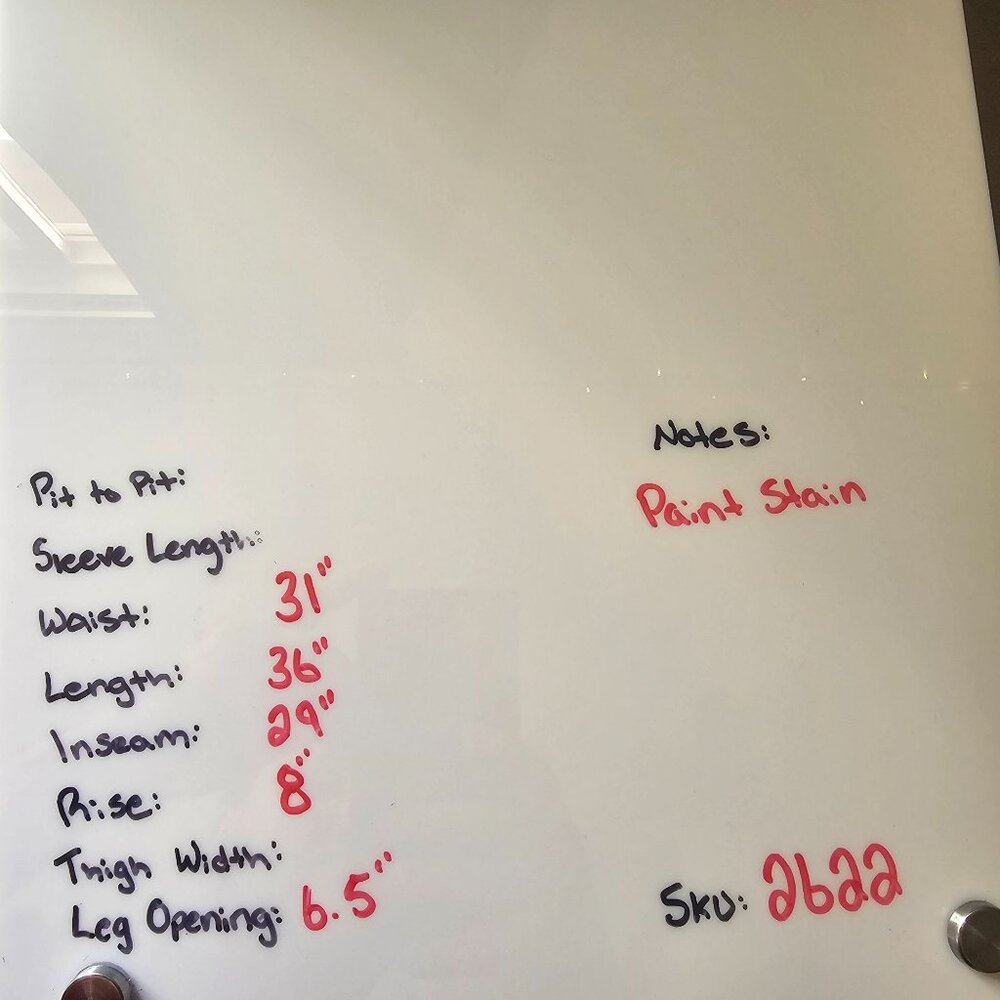 Pit to Pit:
Sleeve Length:
Waist: 31"
Length: 36"
Inseam: 29"
Rise: 8"
Thigh Width:
Leg Opening: 6.5"
Notes:
Paint Stain
Sku: 2622